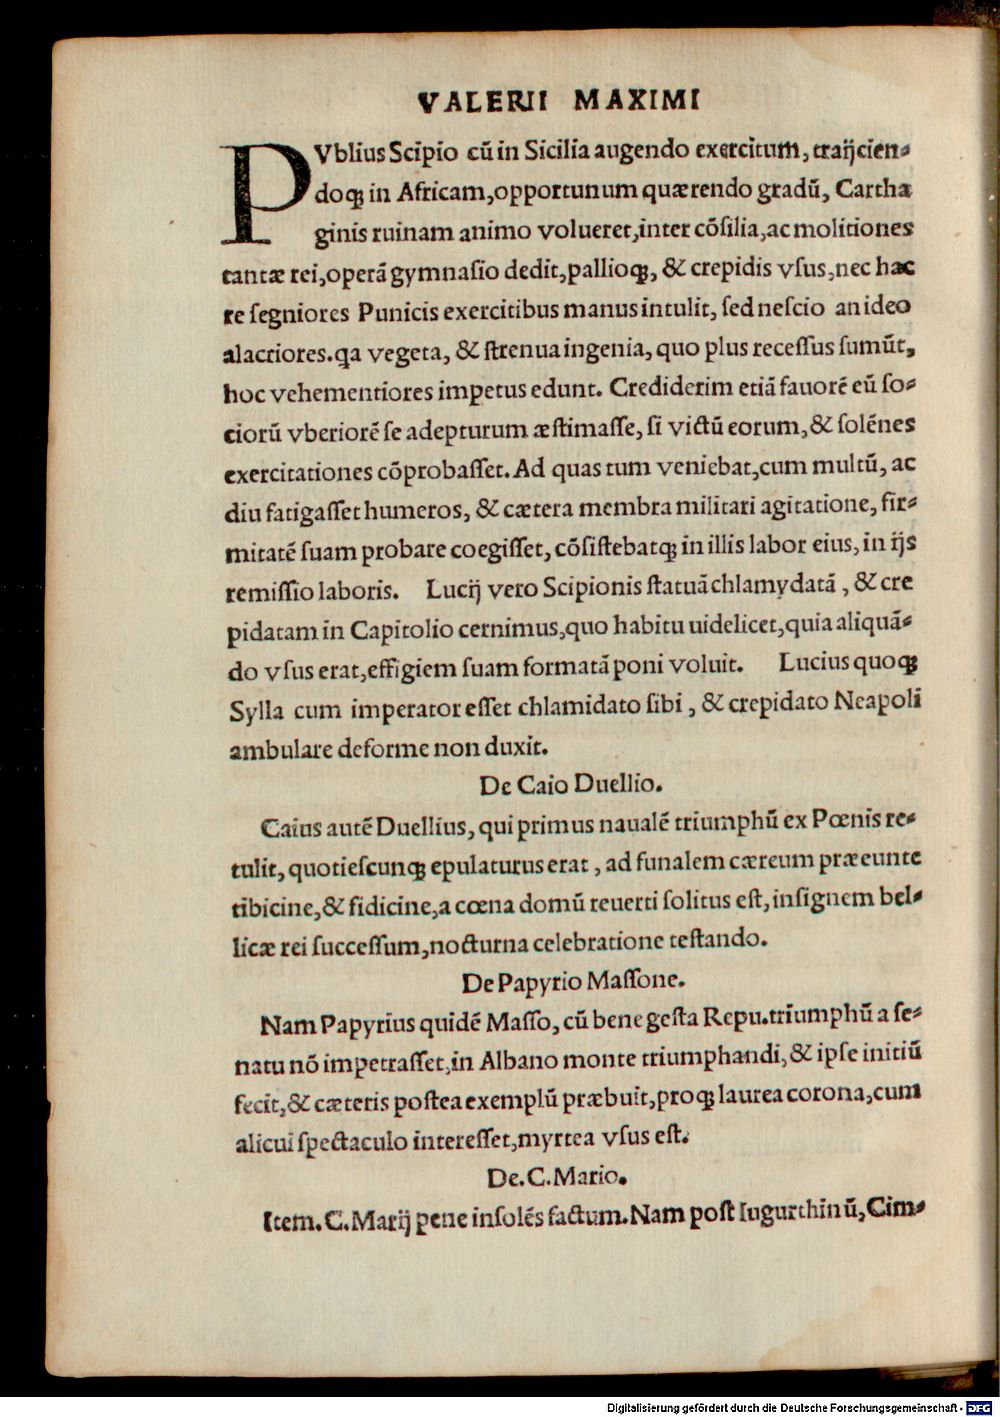 VALERII MAXIMI
PVblius Scipio cũ in Sicilia augendo exercitum, traijcien-
doqꝫ in Africam, opportunum quærendo gradũ, Cartha
ginis ruinam animo volueret, inter cõſilia, ac molitiones
tantæ rei, operã gymnaſio dedit, pallioqꝫ, & crepidis vſus, nec hac
re ſegniores Punicis exercitibus manus intulit, ſed neſcio an ideo
alacriores. qa vegeta, & ſtrenua ingenia, quo plus receſſus ſumũt,
hoc vehementiores impetus edunt. Crediderim etiã fauorẽ eũ ſo-
ciorũ vberiorẽ ſe adepturum æſtimaſſe, ſi victũ eorum, & ſolẽnes
exercitationes cõprobaſſet. Ad quas tum veniebat, cum multũ, ac
diu fatigaſſet humeros, & cætera membra militari agitatione, fir-
mitatẽ ſuam probare coegiſſet, cõſiſtebatqꝫ in illis labor eius, in ijs
remiſſio laboris. Lucij vero Scipionis ſtatuã chlamydatã, & cre
pidatam in Capitolio cernimus, quo habitu uidelicet, quia aliquã-
do vſus erat, effigiem ſuam formatã poni voluit. Lucius quoqꝫ
Sylla cum imperator eſſet chlamidato ſibi, & crepidato Neapoli
ambulare deforme non duxit.
De Caio Duellio.
Caius autẽ Duellius, qui primus naualẽ triumphũ ex Pœnis re-
tulit, quotieſcunqꝫ epulaturus erat, ad funalem cæreum præeunte
tibicine, & fidicine, a cœna domũ reuerti ſolitus eſt, inſignem bel-
licæ rei ſucceſſum, nocturna celebratione teſtando.
De Papyrio Maſſone.
Nam Papyrius quidẽ Maſſo, cũ bene geſta Repu. triumphũ a ſe-
natu nõ impetraſſet, in Albano monte triumphandi, & ipſe initiũ
fecit, & cæteris poſtea exemplũ præbuit, proqꝫ laurea corona, cum
alicui ſpectaculo intereſſet, myrtea vſus eſt.
De. C. Mario.
Item. C. Marij pene inſolẽs factum. Nam poſt Iugurthinũ, Cim-
Digitalisierung gefördert durch die Deutsche Forschungsgemeinschaft - DFG